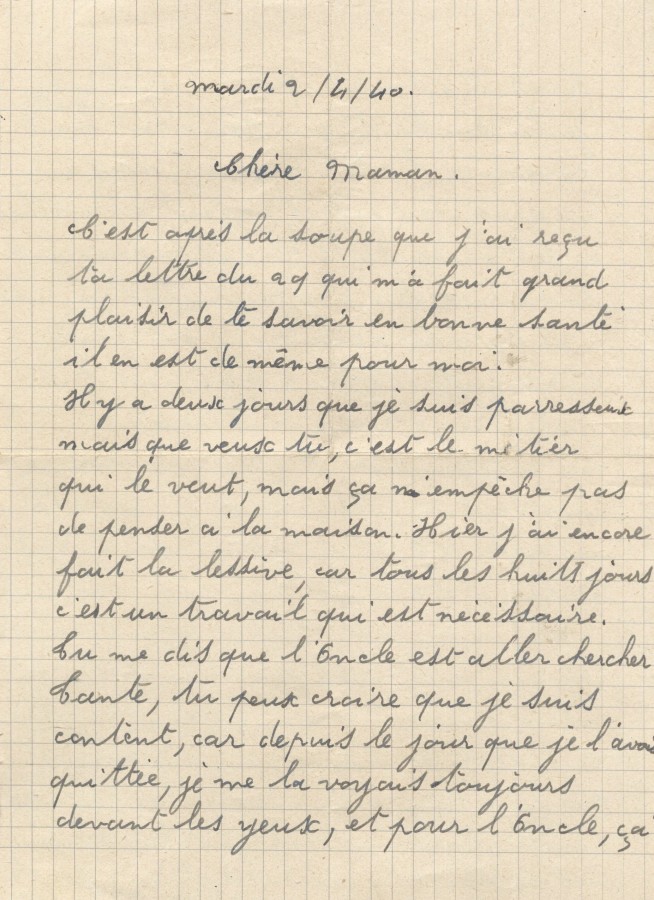 mardi 2/4/40.
Chère Maman.
C'est après la soupe que j'ai reçu
ta lettre du 29 qui m'a fait grand
plaisir de te savoir en bonne santé
il en est de même pour moi.
Il y a deux jours que je suis parresseux
mais que veux tu, c'est le métier
qui le veut, mais ça m'empêche pas
de penser à la maison. Hier j'ai encore
fait la lessive, car tous les huitt jours
c'est un travail qui est nécéssaire.
Tu me dis que l'Oncle est aller chercher
Tante, tu peux croire que je suis
content, car depuis le jour que je l'avais
quittée, je me la voyais toujours
devant les yeux, et pour l'Oncle, ça